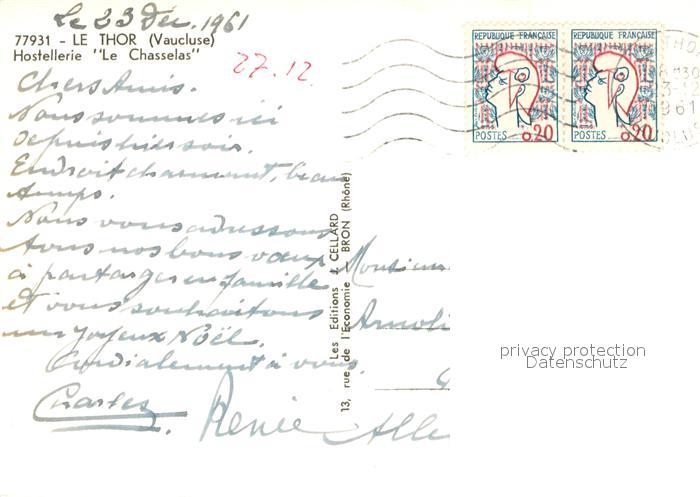 Le 23 Dec. 1961
77931 - LE THOR (Vaucluse)
Hostellerie "Le Chasselas"
27.12.
Chers Amis.
Nous sommes ici
depuis hier soir.
Endroit charmant, beau
temps.
Nous vous adressons
tous nos bons vœux
à partager en famille
et vous souhaitons
un Joyeux Noël.
Cordialement à vous.
Charles
Renée
Les Editions J. CELLARD
13, rue de l'Economie - BRON (Rhône)
REPUBLIQUE FRANÇAISE
POSTES 0,20
REPUBLIQUE FRANÇAISE
POSTES 0,20
THO
8H30
3-12
1961
Monsieur
Arnol
Alle
privacy protection
Datenschutz